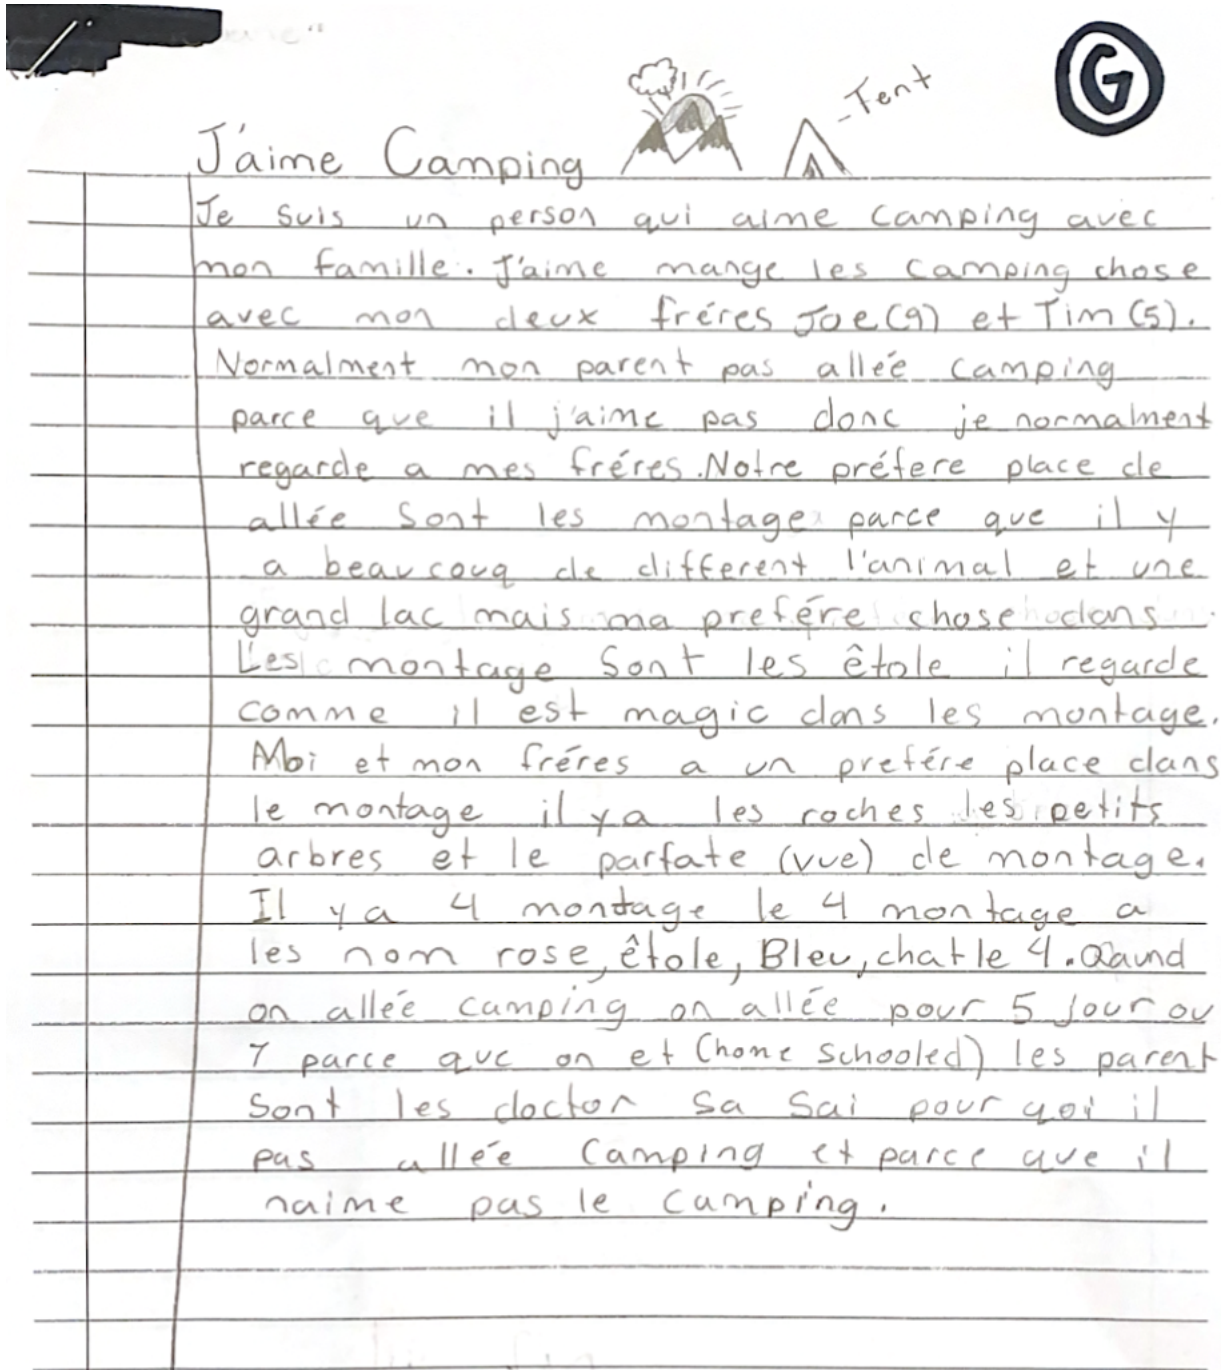 G
Tent
J'aime Camping
Je suis un person qui aime camping avec
mon famille. J'aime mange les camping chose
avec mon deux fréres Joe (9) et Tim (5).
Normalment mon parent pas alleé camping
parce que il j'aime pas donc je normalment
regarde a mes fréres. Notre préfere place de
allée sont les montage parce que il y
a beaucouq de different l'animal et une
grand lac mais ma prefére chose dans
Les montage sont les êtole il regarde
comme il est magic dans les montage.
Moi et mon fréres a un prefére place dans
le montage il y a les roches les petits
arbres et le parfate (vue) de montage.
Il y a 4 montage le 4 montage a
les nom rose, êtole, Bleu, chat le 4. Qaund
on alleé camping on allée pour 5 jour ou
7 parce que on et (home schooled) les parent
sont les doctor sa sai pour qoi il
pas alleé camping et parce que il
naime pas le camping.